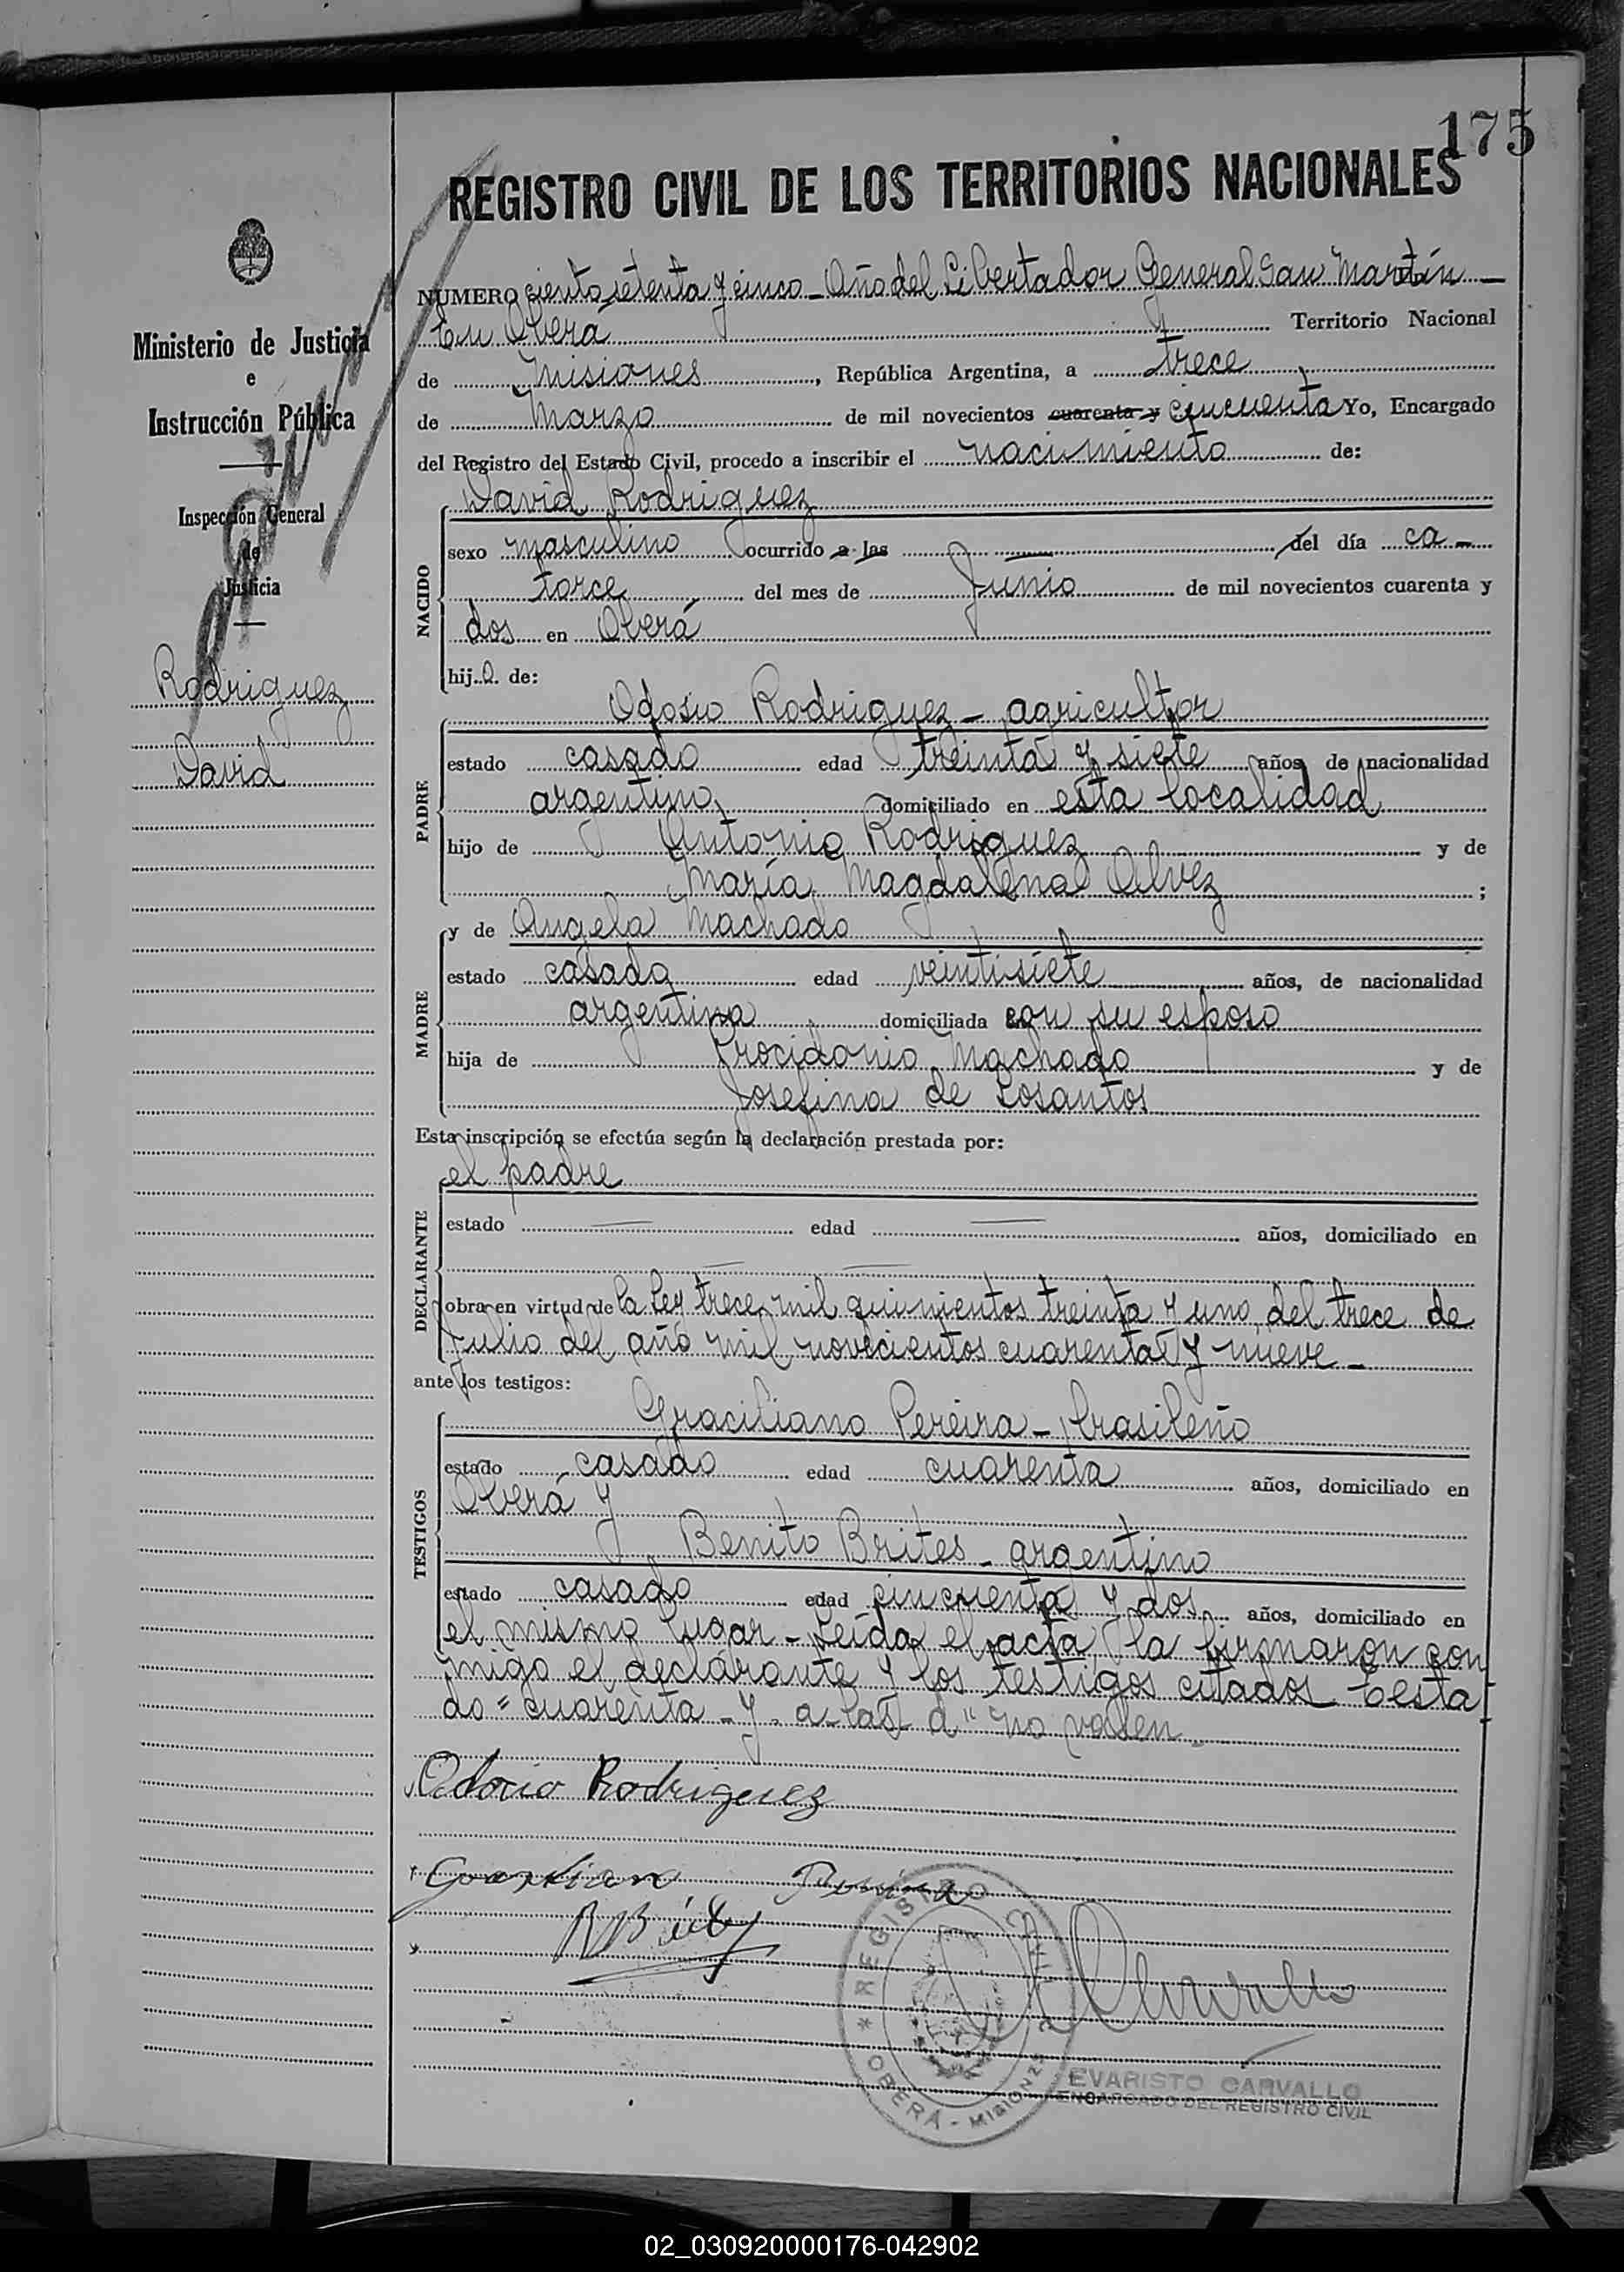 175
REGISTRO CIVIL DE LOS TERRITORIOS NACIONALES
Ministerio de Justicia
e
Instrucción Pública
Inspección General
de
Justicia
Rodriguez
David
NUMERO ciento setenta y cinco - Año del Libertador General San Martín -
En Oberá Territorio Nacional
de Misiones, República Argentina, a trece
de Marzo de mil novecientos cuarenta y cincuenta Yo, Encargado
del Registro del Estado Civil, procedo a inscribir el nacimiento de:
NACIDO
David Rodriguez
sexo masculino ocurrido a las del día ca-
torce del mes de Junio de mil novecientos cuarenta y
dos en Oberá
hijo de:
PADRE
Odosio Rodriguez - agricultor
estado casado edad treinta y siete años, de nacionalidad
argentino domiciliado en esta localidad
hijo de Antonio Rodriguez y de
María Magdalena Alvez ;
MADRE
y de Angela Machado
estado casada edad veintisiete años, de nacionalidad
argentina domiciliada con su esposo
hija de Procidonio Machado y de
Josefina de Losantos
Esta inscripción se efectúa según la declaración prestada por:
DECLARANTE
el padre
estado edad años, domiciliado en
obra en virtud de la Ley trece mil quinientos treinta y uno del trece de
Julio del año mil novecientos cuarenta y nueve -
ante los testigos:
TESTIGOS
Graciliano Pereira - brasileño
estado casado edad cuarenta años, domiciliado en
Oberá y
Benito Brites - argentino
estado casado edad cincuenta y dos años, domiciliado en
el mismo lugar - Leída el acta, la firmaron con
migo el declarante y los testigos citados Testa
do "cuarenta - y - a las d" no valen -
Odosio Rodriguez
REGISTRO CIVIL
* OBERÁ - MISIONES *
EVARISTO CARVALLO
ENCARGADO DEL REGISTRO CIVIL
02_030920000176-042902